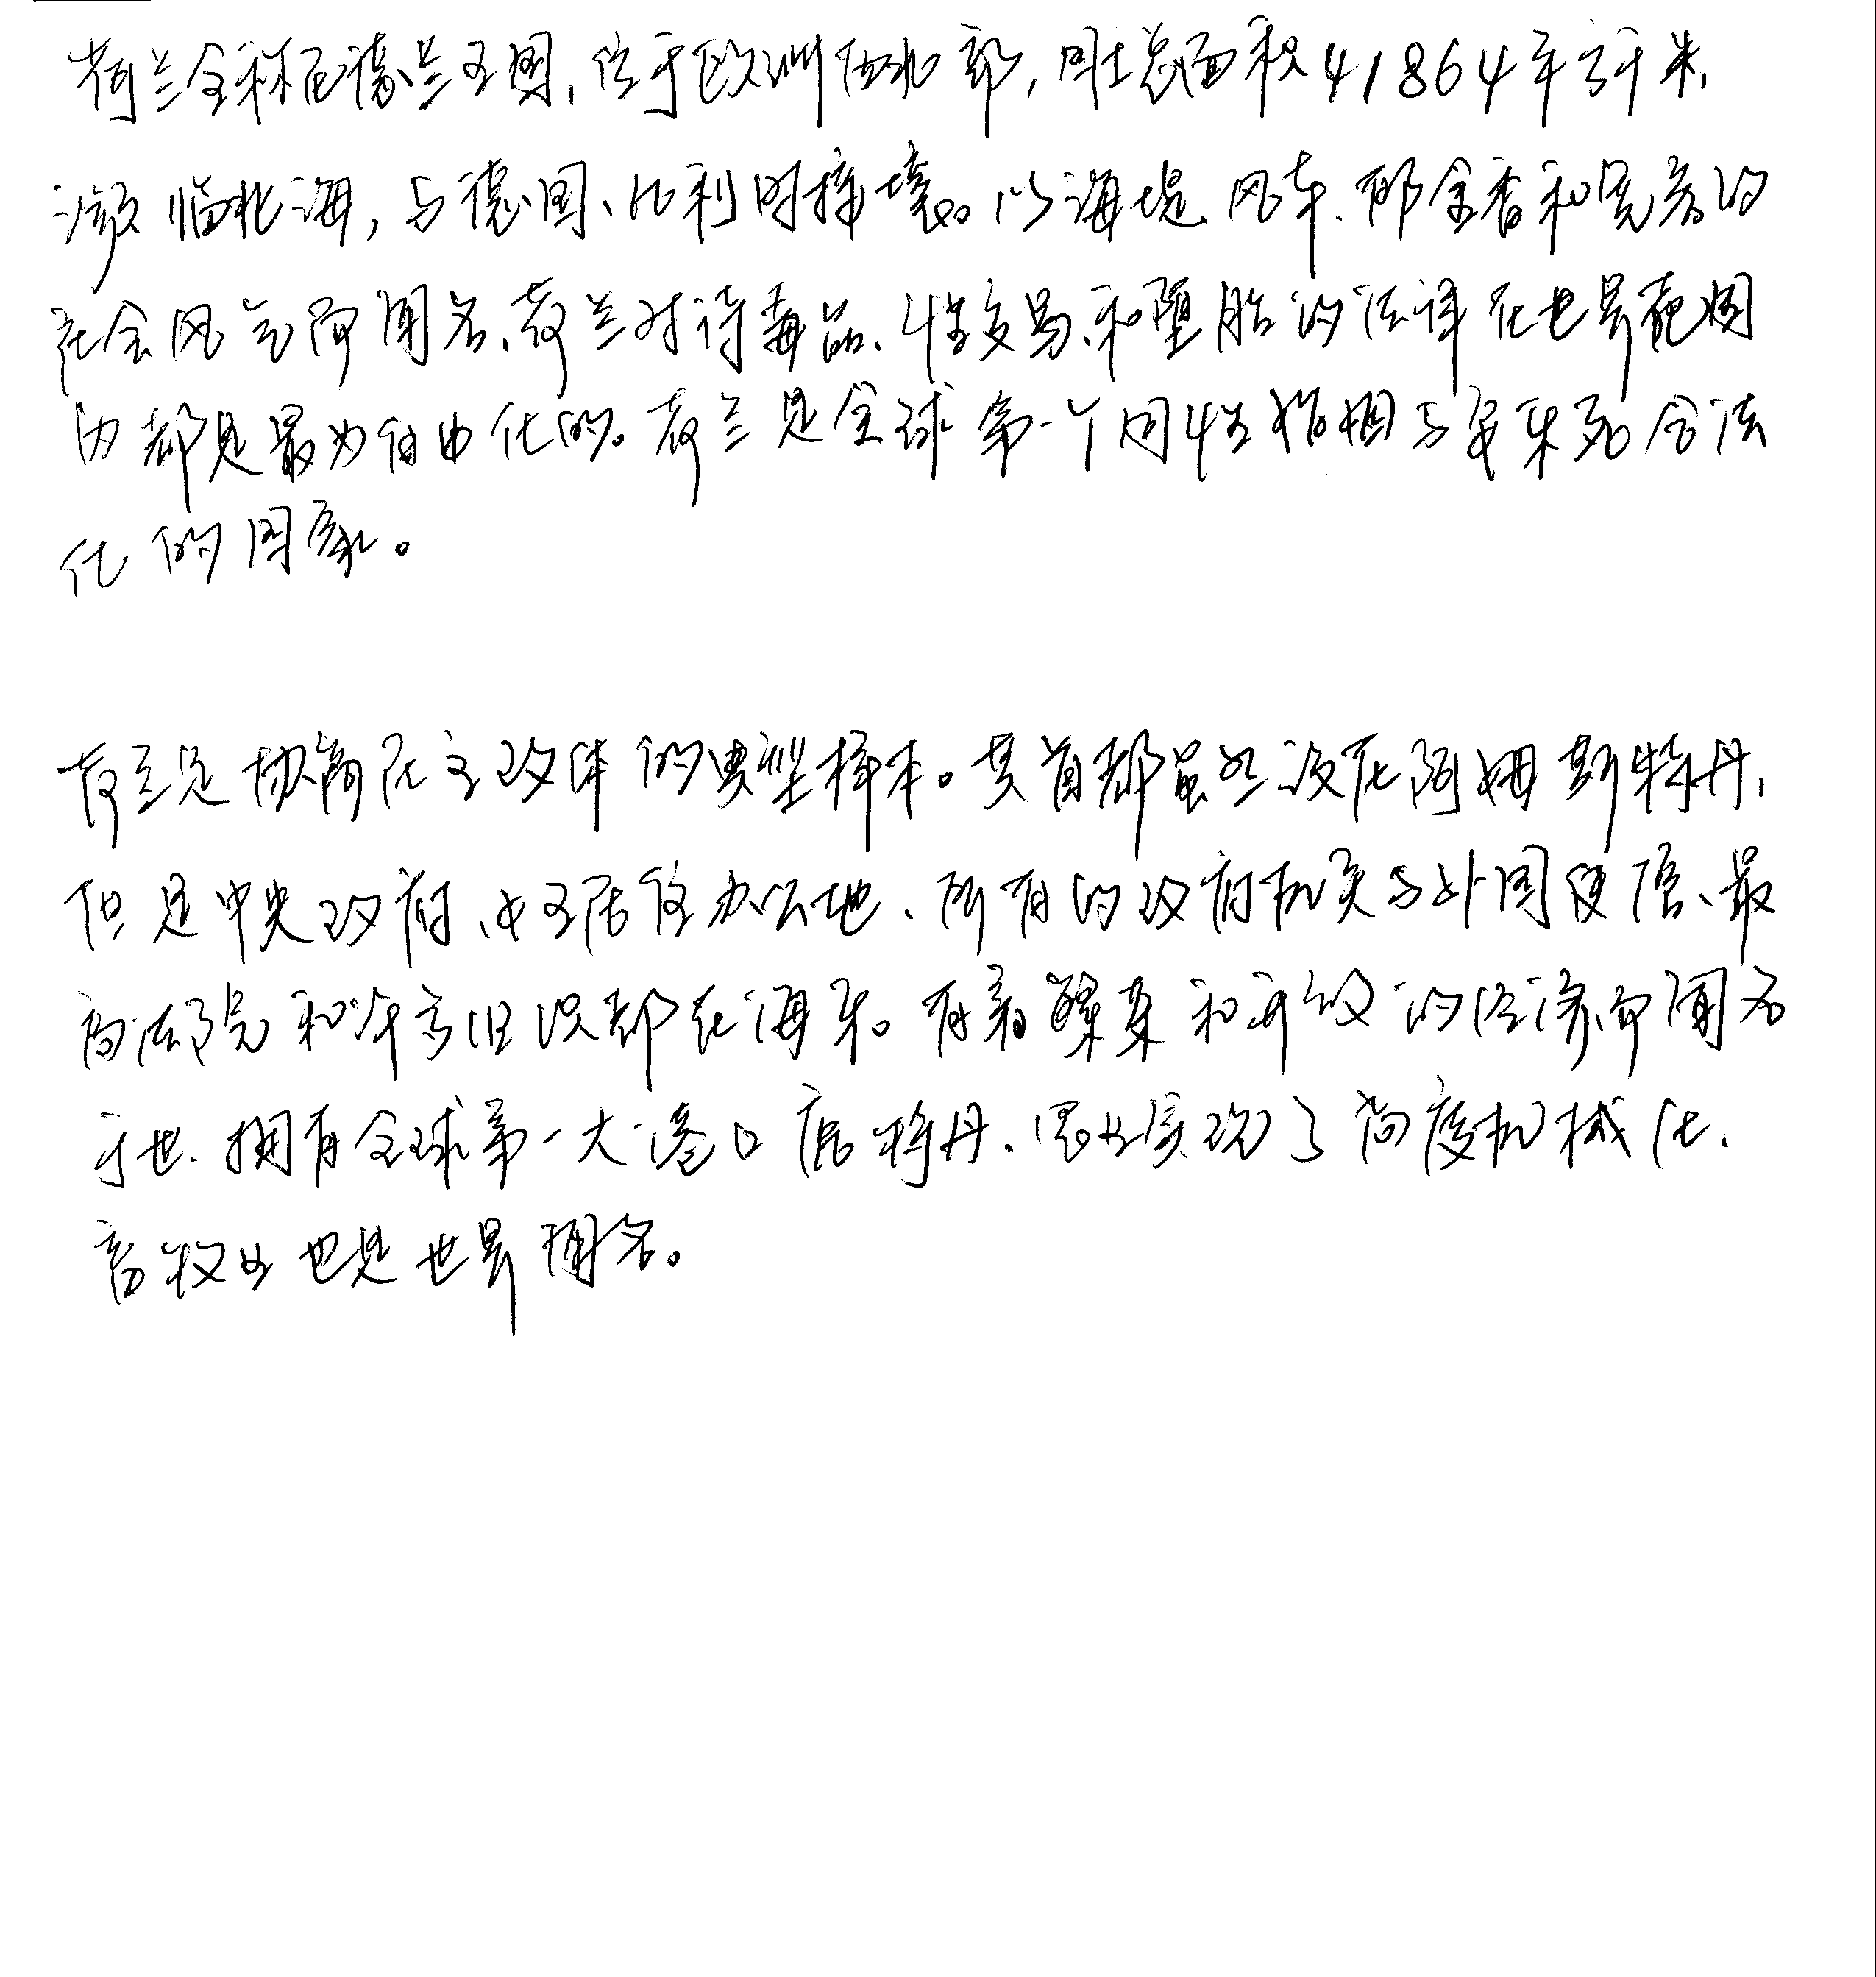 荷兰全称尼德兰王国,位于欧洲西北部,国土总面积41864平方千米,
濒临北海,与德国、比利时接壤。以海堤、风车、郁金香和宽容的
社会风气而闻名、荷兰对待毒品、性交易、和堕胎的法律在世界范围
内都是最为自由化的。荷兰是全球第一个同性婚姻与安乐死合法
化的国家。
荷兰是协商民主政体的典型样本。其首都虽然设在阿姆斯特丹,
但是中央政府、女王居住办公地、所有的政府机关与外国使馆、最
高法院和许多组织都在海牙。有着繁荣和开放的经济而闻名
于世、拥有全球第一大港口鹿特丹、农业实现了高度机械化、
畜牧业也是世界闻名。